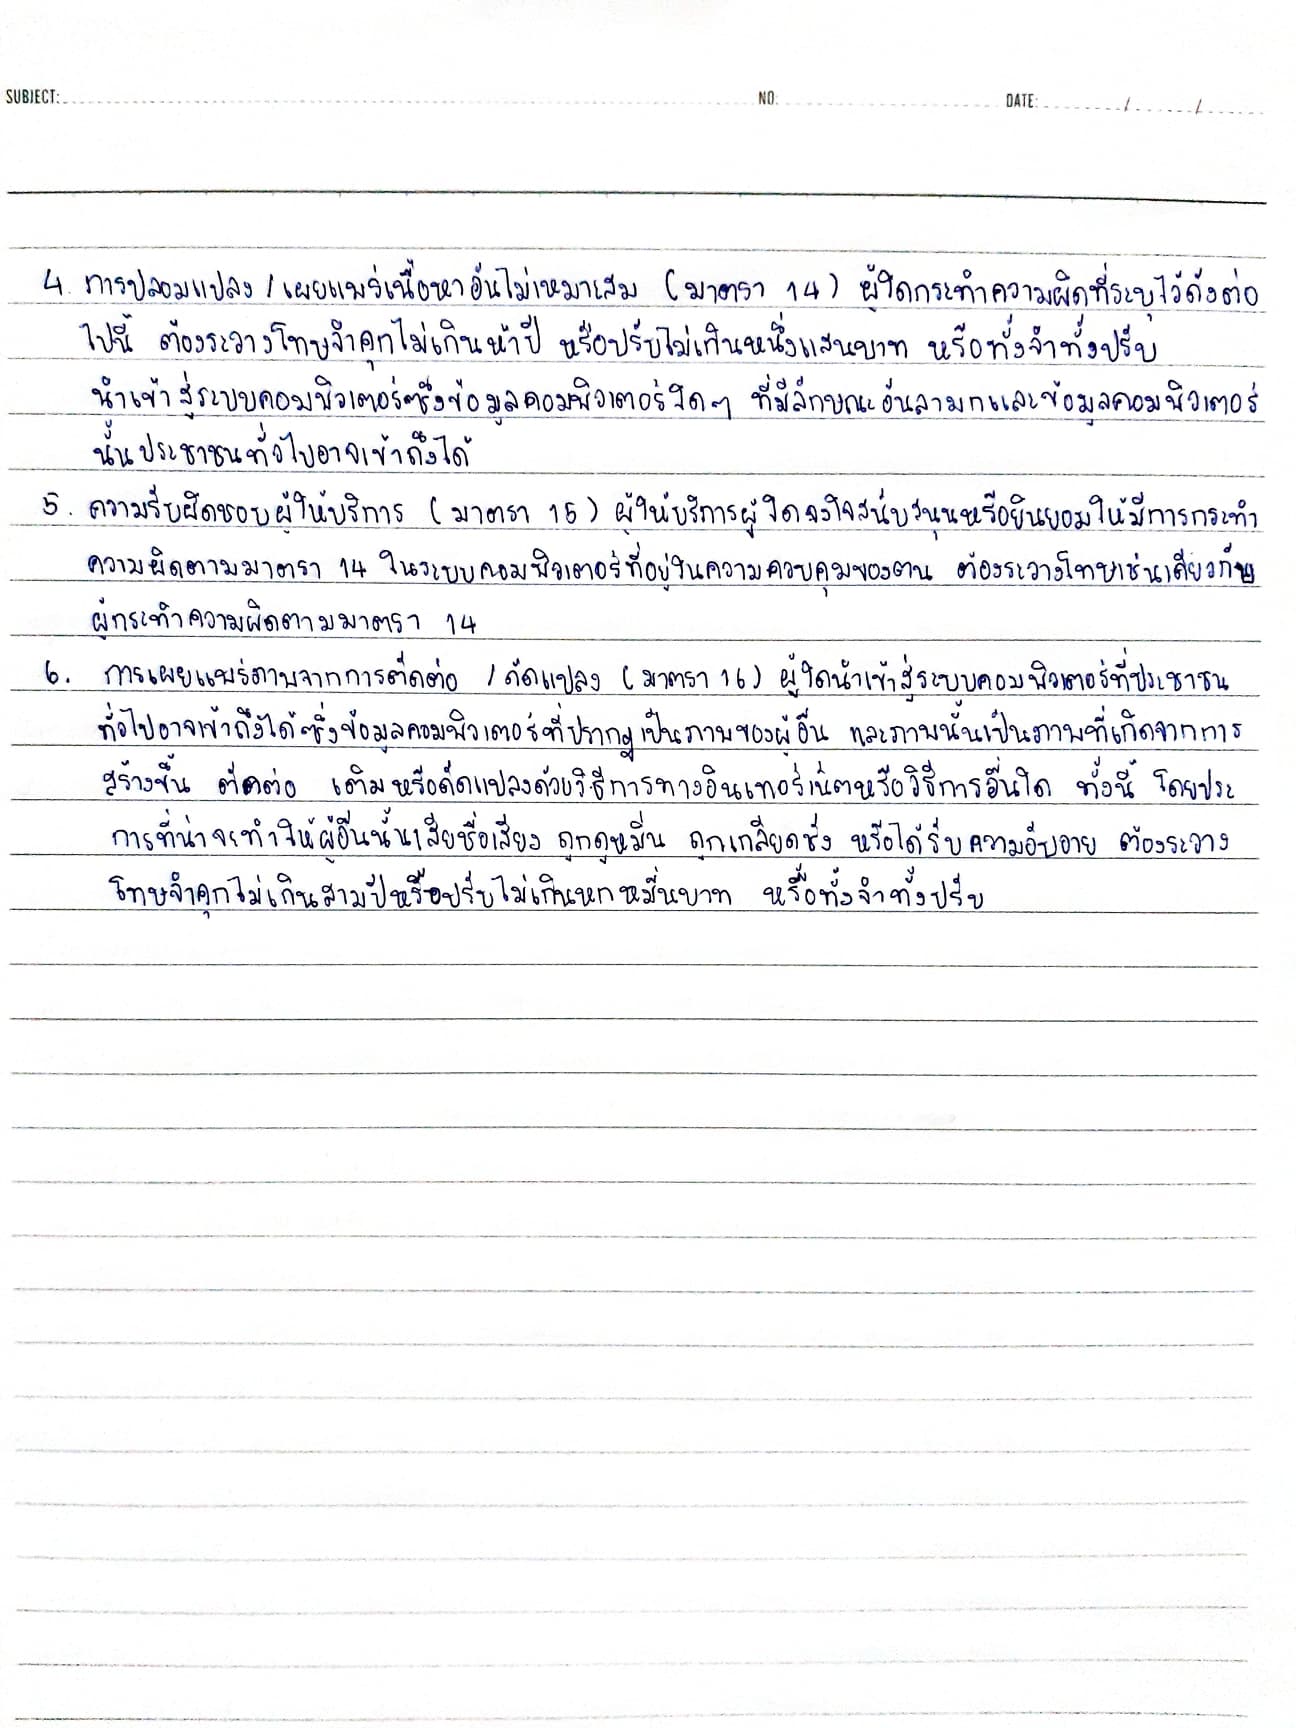 SUBJECT: NO: DATE: / /
4. การปลอมแปลง / เผยแพร่เนื้อหาอันไม่เหมาะสม (มาตรา 14) ผู้ใดกระทำความผิดที่ระบุไว้ดังต่อ
ไปนี้ ต้องระวางโทษจำคุกไม่เกินห้าปี หรือปรับไม่เกินหนึ่งแสนบาท หรือทั้งจำทั้งปรับ
นำเข้าสู่ระบบคอมพิวเตอร์ซึ่งข้อมูลคอมพิวเตอร์ใดๆ ที่มีลักษณะอันลามกและข้อมูลคอมพิวเตอร์
นั้นประชาชนทั่วไปอาจเข้าถึงได้
5. ความรับผิดชอบผู้ให้บริการ (มาตรา 15) ผู้ให้บริการผู้ใดจงใจสนับสนุนหรือยินยอมให้มีการกระทำ
ความผิดตามมาตรา 14 ในระบบคอมพิวเตอร์ที่อยู่ในความควบคุมของตน ต้องระวางโทษเช่นเดียวกับ
ผู้กระทำความผิดตามมาตรา 14
6. การเผยแพร่ภาพจากการตัดต่อ / ดัดแปลง (มาตรา 16) ผู้ใดนำเข้าสู่ระบบคอมพิวเตอร์ที่ประชาชน
ทั่วไปอาจเข้าถึงได้ซึ่งข้อมูลคอมพิวเตอร์ที่ปรากฎเป็นภาพของผู้อื่น และภาพนั้นเป็นภาพที่เกิดจากการ
สร้างขึ้น ตัดต่อ เติมหรือดัดแปลงด้วยวิธีการทางอินเทอร์เน็ตหรือวิธีการอื่นใด ทั้งนี้ โดยประ
การที่น่าจะทำให้ผู้อื่นนั้นเสียชื่อเสียง ถูกดูหมิ่น ถูกเกลียดชัง หรือได้รับความอับอาย ต้องระวาง
โทษจำคุกไม่เกินสามปีหรือปรับไม่เกินหกหมื่นบาท หรือทั้งจำทั้งปรับ